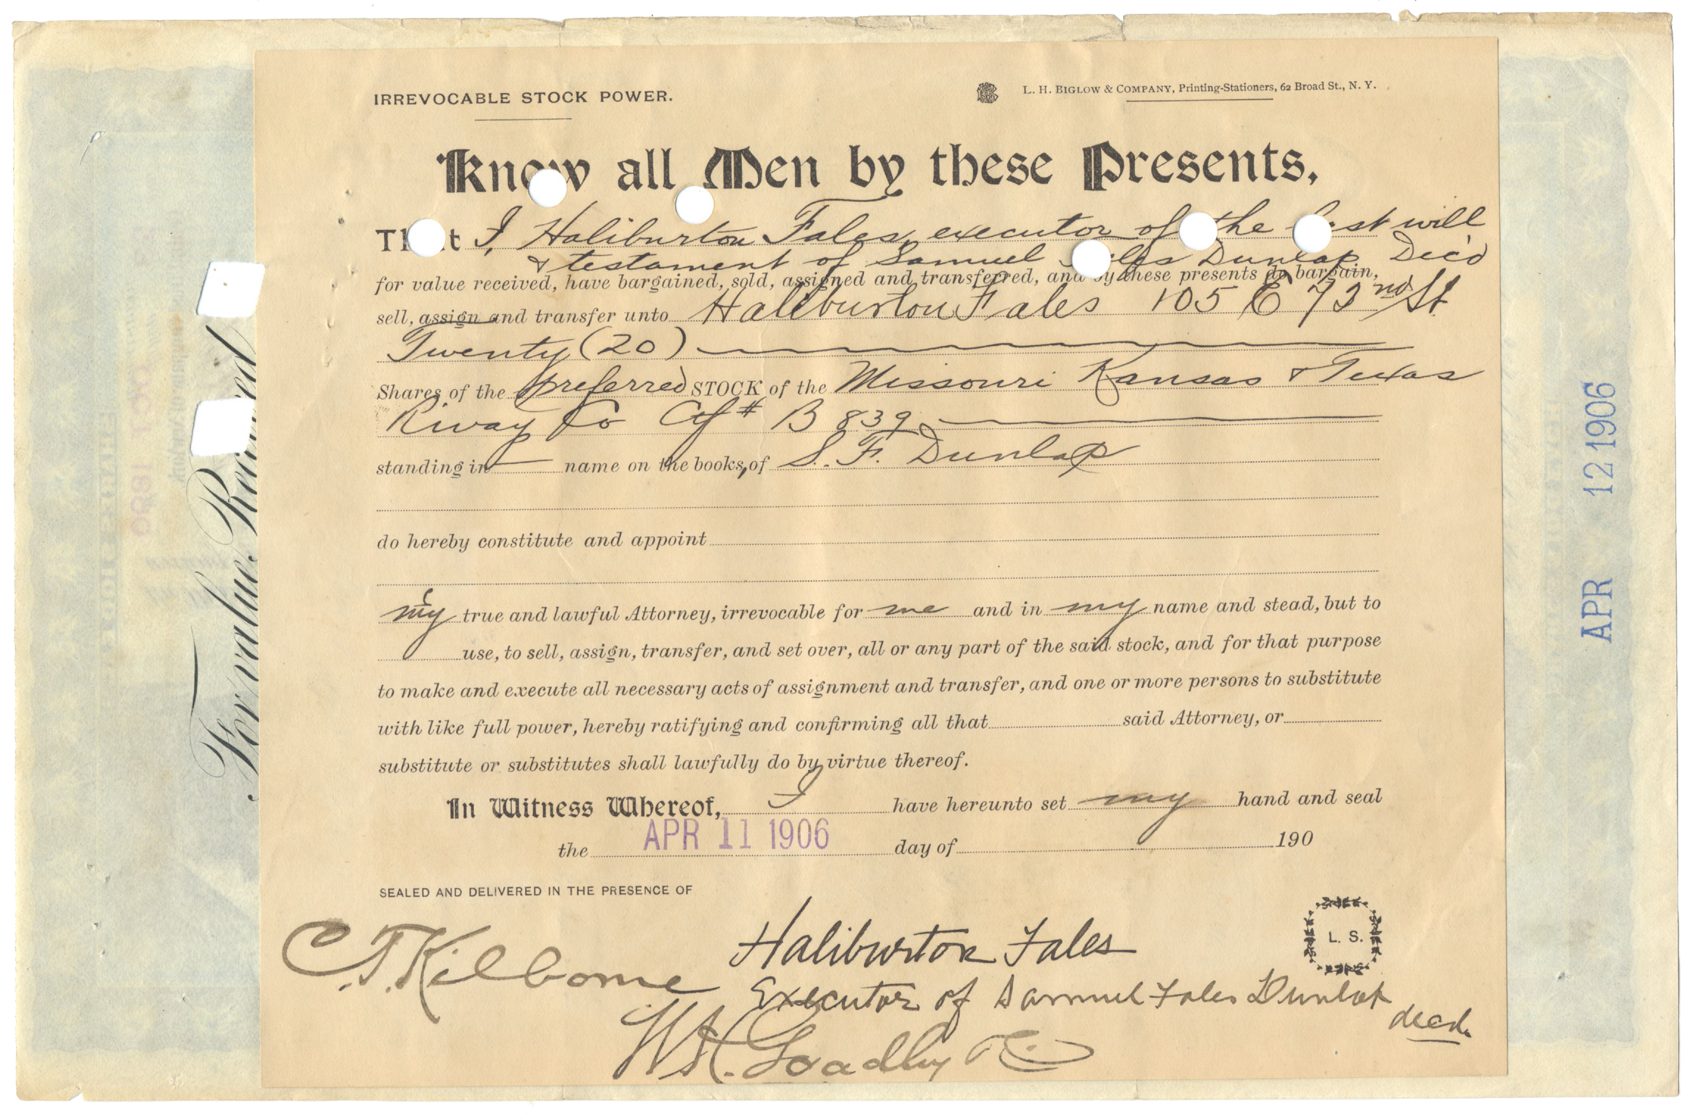 IRREVOCABLE STOCK POWER.
L. H. BIGLOW & COMPANY, Printing-Stationers, 62 Broad St., N. Y.
Know all Men by these Presents,
That I, Haliburton Fales, executor of the last will
& testament of Samuel Fales Dunlap Dec'd
for value received, have bargained, sold, assigned and transferred, and by these presents do bargain,
sell, assign and transfer unto Haliburton Fales 105 E 73nd St
Twenty (20)
Shares of the preferred STOCK of the Missouri Kansas & Texas
Rway Co Ctf # B 839
standing in name on the books, of S. F. Dunlap
do hereby constitute and appoint
my true and lawful Attorney, irrevocable for me and in my name and stead, but to
use, to sell, assign, transfer, and set over, all or any part of the said stock, and for that purpose
to make and execute all necessary acts of assignment and transfer, and one or more persons to substitute
with like full power, hereby ratifying and confirming all that said Attorney, or
substitute or substitutes shall lawfully do by virtue thereof.
In Witness Whereof, I have hereunto set my hand and seal
the APR 11 1906 day of 190
SEALED AND DELIVERED IN THE PRESENCE OF
L. S.
Haliburton Fales
C. T. Kilborne
Executor of Samuel Fales Dunlap
decd.
W. H. Goadby
For value Received
APR 12 1906